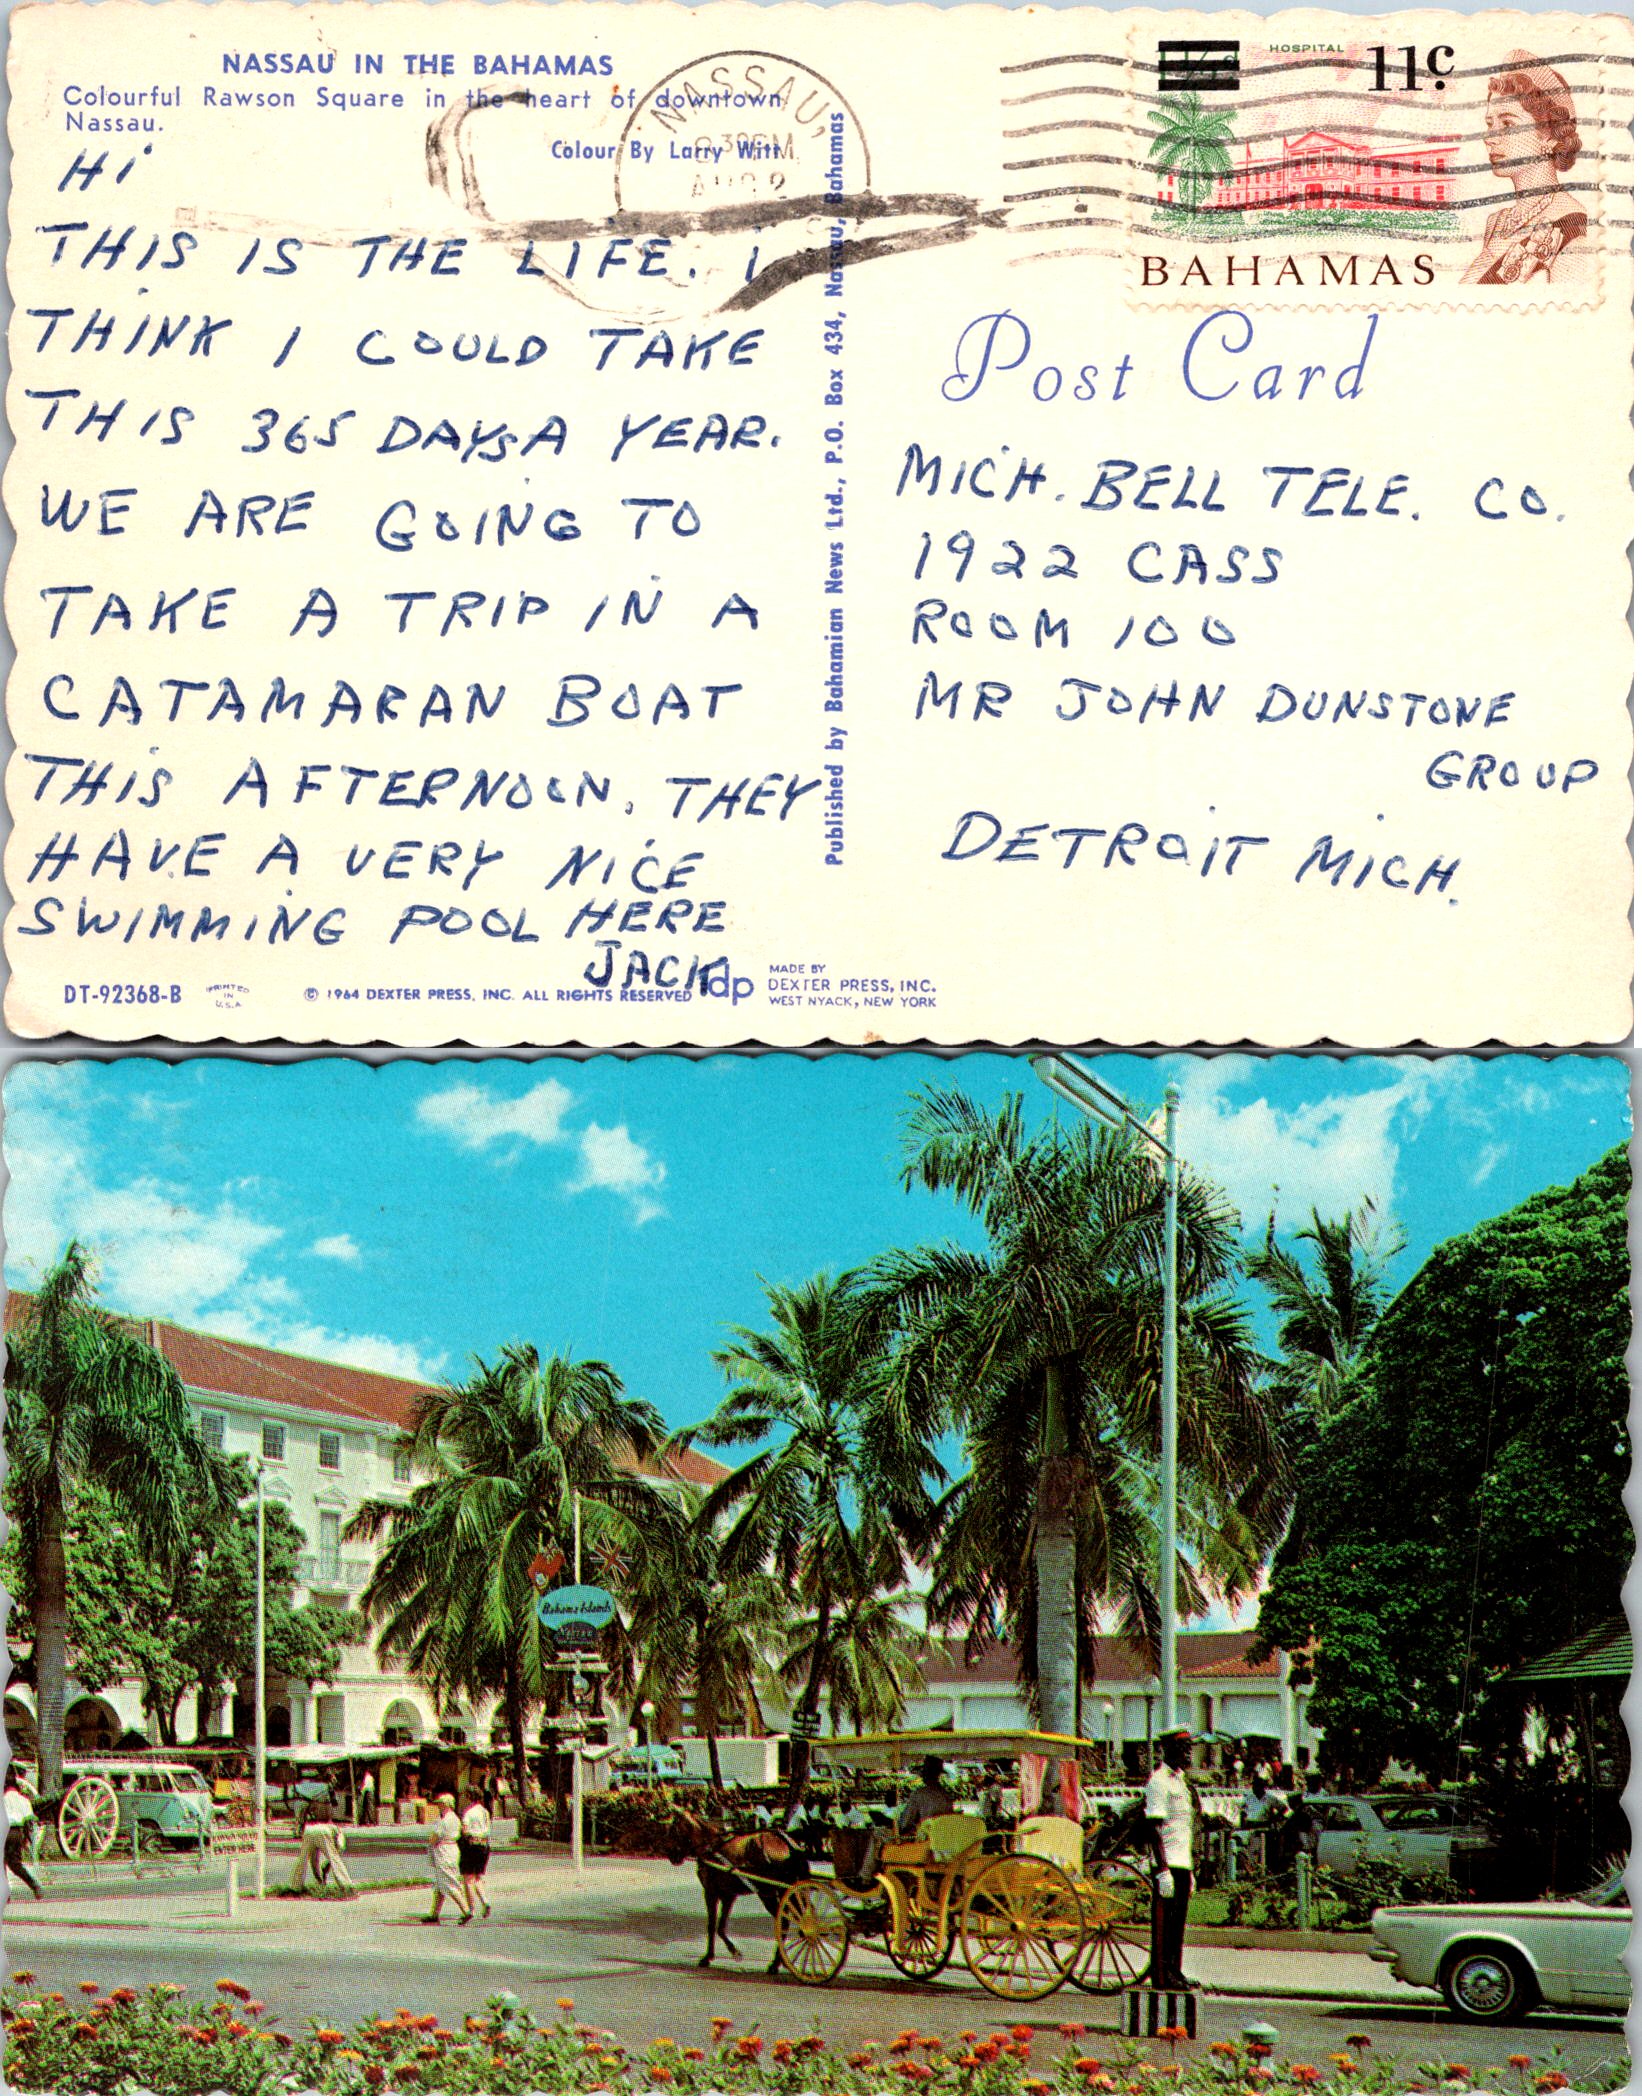 NASSAU IN THE BAHAMAS
Colourful Rawson Square in the heart of downtown
Nassau.
Colour By Larry Witt
Hi
THIS IS THE LIFE. I
THINK I COULD TAKE
THIS 365 DAYS A YEAR.
WE ARE GOING TO
TAKE A TRIP IN A
CATAMARAN BOAT
THIS AFTERNOON. THEY
HAVE A VERY NICE
SWIMMING POOL HERE
JACK
DT-92368-B
PRINTED
IN
U.S.A.
© 1964 DEXTER PRESS, INC. ALL RIGHTS RESERVED
dp
MADE BY
DEXTER PRESS, INC.
WEST NYACK, NEW YORK
Published by Bahamian News Ltd., P.O. Box 434, Nassau, Bahamas
NASSAU,
AUG 2
HOSPITAL
11c
BAHAMAS
Post Card
MICH. BELL TELE. CO.
1922 CASS
ROOM 100
MR JOHN DUNSTONE
GROUP
DETROIT MICH.
Bahama Islands
ENTER HERE